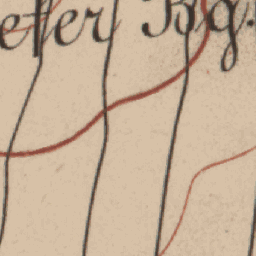 efer Bg.